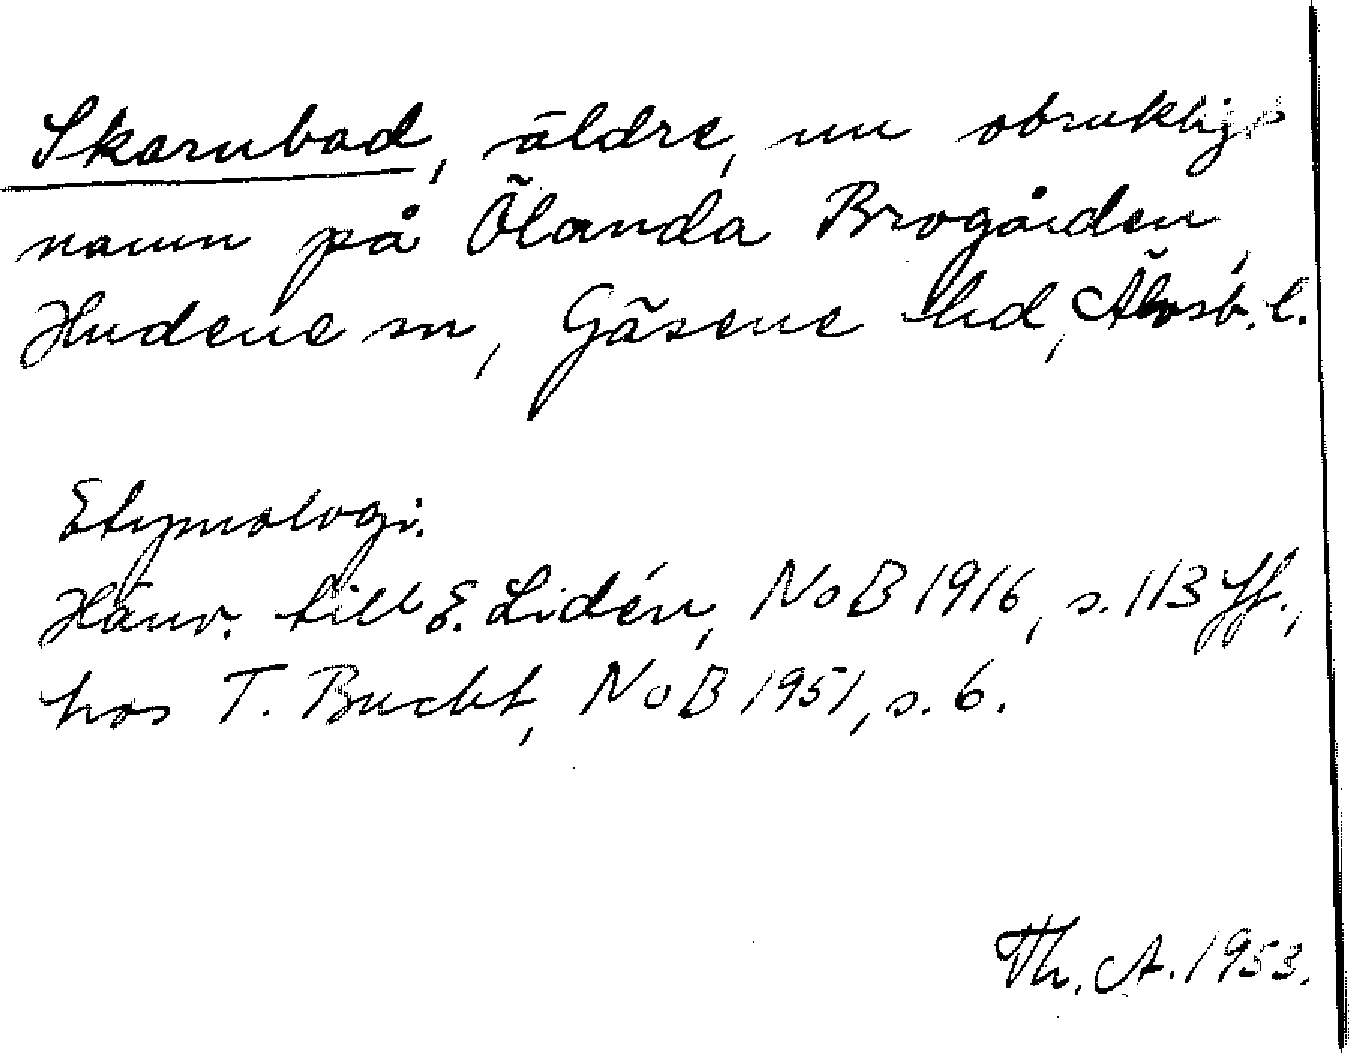 Skarnbad, äldre, nu obrukligt
namn på Ölanda Brogården,
Hudene sn, Gäsene hd, Älvsb. l.
Etymologi.
Hänv. till E. Lidén, NoB 1916, s. 113 ff.,
hos T. Bucht, NoB 1951, s. 6.
Th. A. 1953.